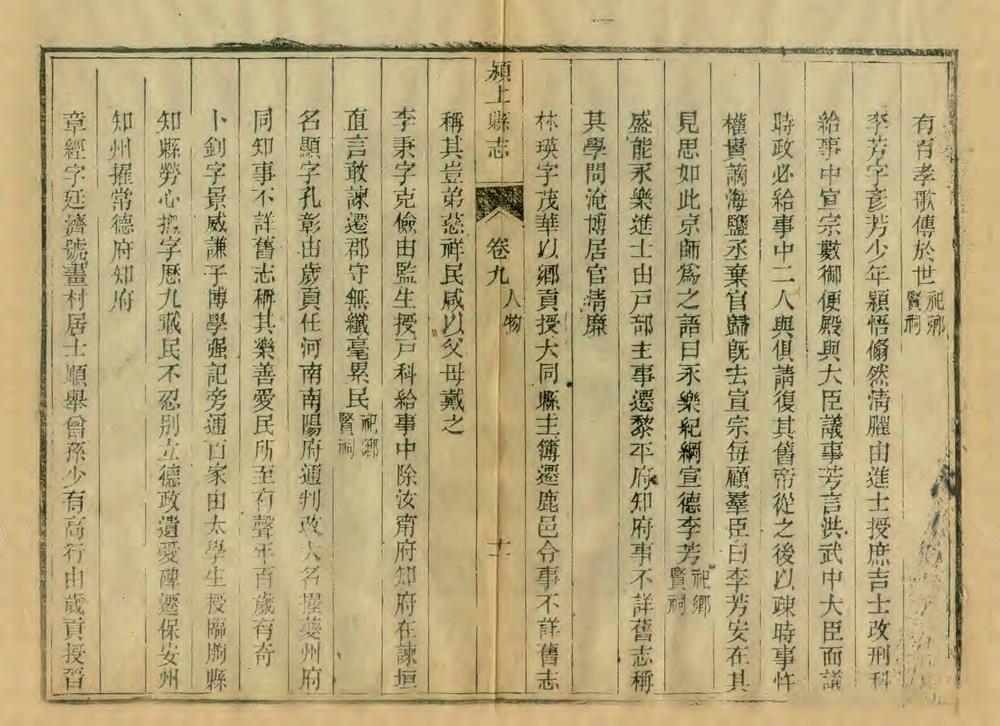 有百孝歌傳於世祀鄉賢祠
李芳字彥芳少年穎悟翛然清臞由進士授庶吉士改刑科
給事中宣宗數御便殿與大臣議事芳言洪武中大臣面議
時政必給事中二人與俱請復其舊帝從之後以疎時事忤
權貴謫海鹽丞棄官歸旣去宣宗每顧羣臣曰李芳安在其
見思如此京師為之語曰永樂紀綱宣德李芳祀鄉賢祠
盛能永樂進士由戸部主事遷黎平府知府事不詳舊志稱
其學問淹博居官清廉
林瑛字茂華以鄉貢授大同縣主簿遷鹿邑令事不詳舊志
潁上縣志
卷九
人物
十一
稱其豈弟慈祥民咸以父母戴之
李秉字克儉由監生授戸科給事中除汝甯府知府在諫垣
直言敢諫遷郡守無纖毫累民祀鄉賢祠
名顯字孔彰由歲貢任河南南陽府通判改大名擢夔州府
同知事不詳舊志稱其樂善愛民所至有聲年百歲有奇
卜釗字景威謙子博學强記旁通百家由太學生授臨朐縣
知縣勞心撫字歷九載民不忍別立德政遺愛碑遷保安州
知州擢常德府知府
章經字廷濟號畫村居士順舉曾孫少有高行由歲貢授晉